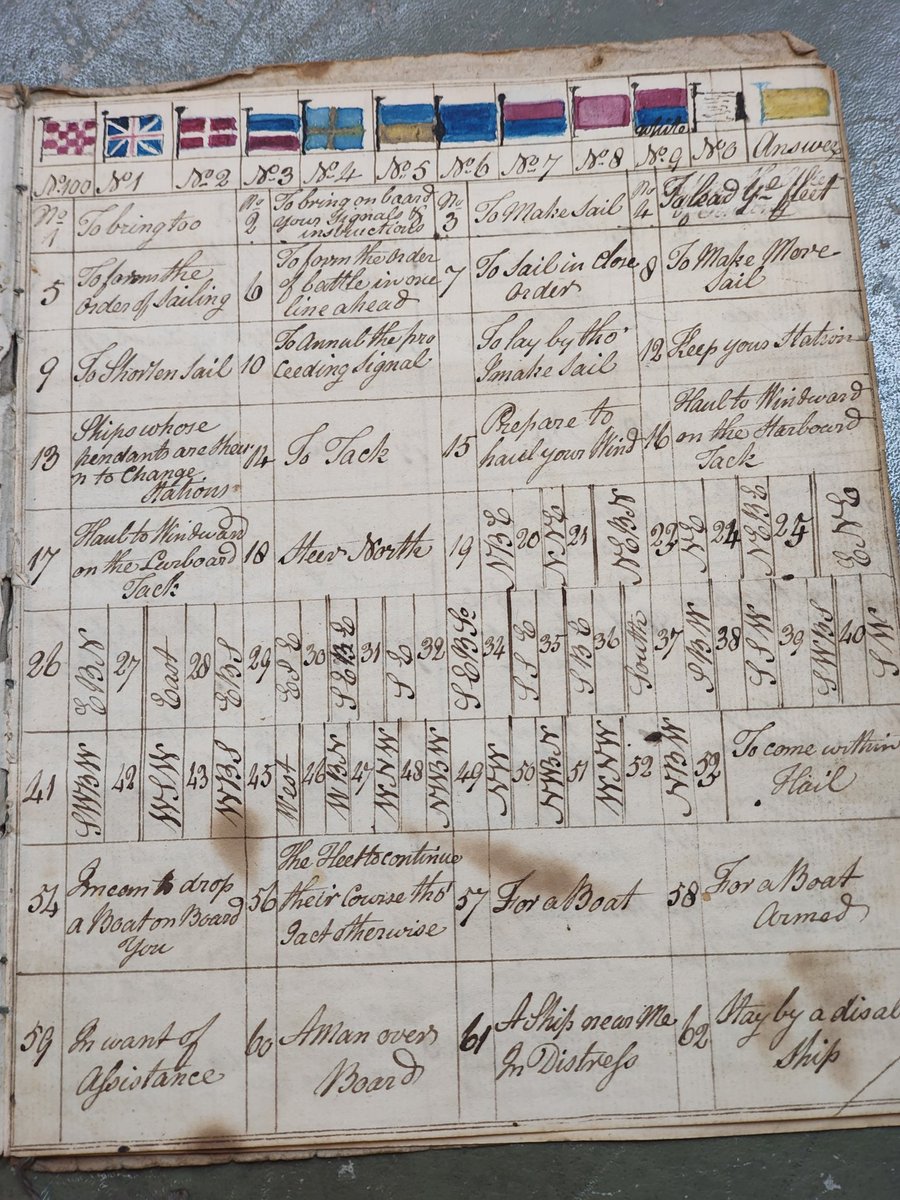 white
No 100 No 1 No 2 No 3 No 4 No 5 No 6 No 7 No 8 No 9 No 0 Answer
No 1 To bring too
No 2 To bring on board
your signals &
instructions
No 3 To Make Sail
No 4 To lead ye fleet
5 To form the
order of Sailing
6 To form the order
of battle in one
line ahead
7 To Sail in Close
order
8 To Make More
Sail
9 To Shorten Sail
10 To Annul the pro
ceeding signal
To lay by tho'
I make Sail
12 Keep your Station
13 Ships whose
pendants are thewr
n to Change
Stations
14 To Tack
15 Prepare to
haul your Wind
16 Haul to Windward
on the Starboard
Tack
17 Haul to Windward
on the Lurboard
Tack
18 Steer North
19 NBE 20 NNE 21 NEBN 22 NE 24 NEBE 25 ENE
26 EBN 27 East 28 EBS 29 ESE 30 SEBE 31 SE 32 SEBSo 34 SSE 35 SBE 36 South 37 SBW 38 SSW 39 SWBS 40 SW
41 SWBW 42 WSW 43 WBS 45 West 46 WBN 47 WNW 48 NWBW 49 NW 50 NWBN 51 WNW 52 NBW
53 To come within
Hail
54 I mean to drop
a Boat on Board
You
56 The Fleet to continue
their Course tho'
I act otherwise
57 For a Boat
58 For a Boat
Armed
59 In want of
Assistance
60 A Man over
Board
61 A Ship near Me
In Distress
62 Stay by a disal
Ship